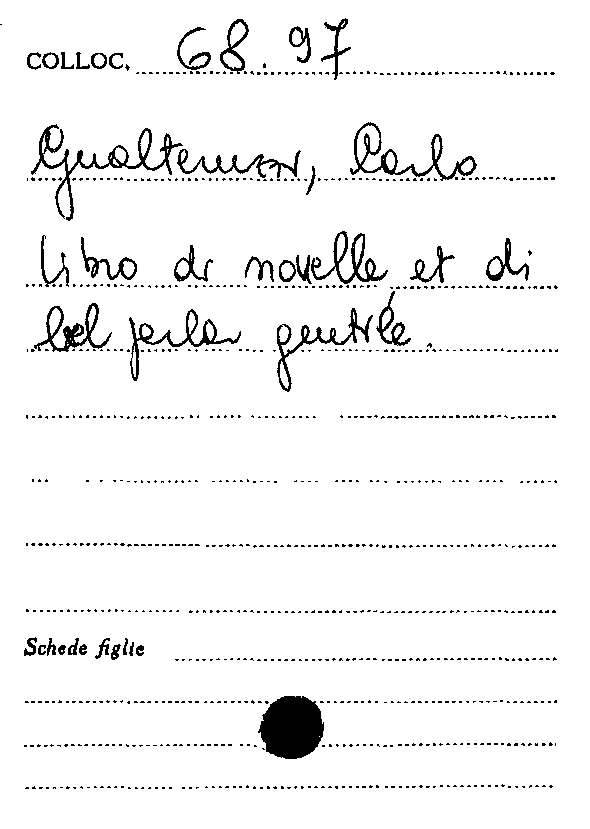 COLLOC. 68.97
Gualteruzzi, Carlo
Libro di novelle et di
bel parlar gentile.
Schede figlie